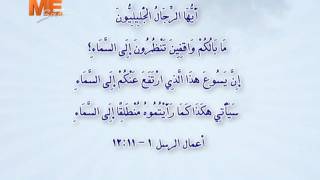 ME
أَيُّهَا الرِّجَالُ الْجَلِيلِيُّونَ
مَا بَالُكُمْ وَاقِفِينَ تَنْظُرُونَ إِلَى السَّمَاءِ؟
إِنَّ يَسُوعَ هذَا الَّذِي ارْتَفَعَ عَنْكُمْ إِلَى السَّمَاءِ
سَيَأْتِي هكَذَا كَمَا رَأَيْتُمُوهُ مُنْطَلِقًا إِلَى السَّمَاءِ
أعمال الرسل ١ - ١٢:١١